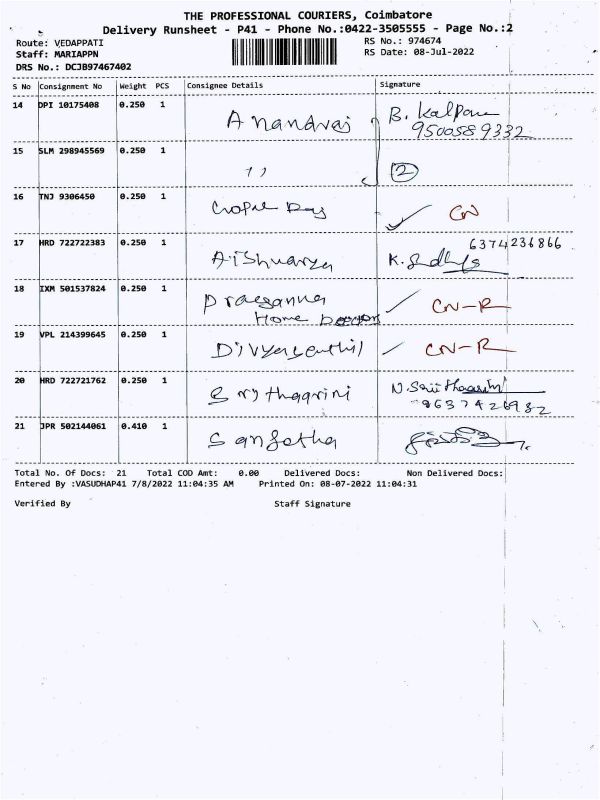 THE PROFESSIONAL COURIERS, Coimbatore
Delivery Runsheet - P41 - Phone No.:0422-3505555 - Page No.:2
Route: VEDAPPATI
RS No.: 974674
Staff: MARIAPPN
RS Date: 08-Jul-2022
DRS No.: DCJB97467402
S No Consignment No Weight PCS Consignee Details Signature
14 DPI 10175408 0.250 1 Anandraj B. Kalpana
9500589332
15 SLM 298945569 0.250 1 " 2
16 TNJ 9306450 0.250 1 CN
17 HRD 722722383 0.250 1 Aishwarya 6374236866
18 IXM 501537824 0.250 1 Prasanna CN-R
Home
19 VPL 214399645 0.250 1 Divyasenthil CN-R
20 HRD 722721762 0.250 1 Srythaarini
21 JPR 502144061 0.410 1 Sangetha
Total No. Of Docs: 21 Total COD Amt: 0.00 Delivered Docs: Non Delivered Docs:
Entered By :VASUDHAP41 7/8/2022 11:04:35 AM Printed On: 08-07-2022 11:04:31
Verified By Staff Signature